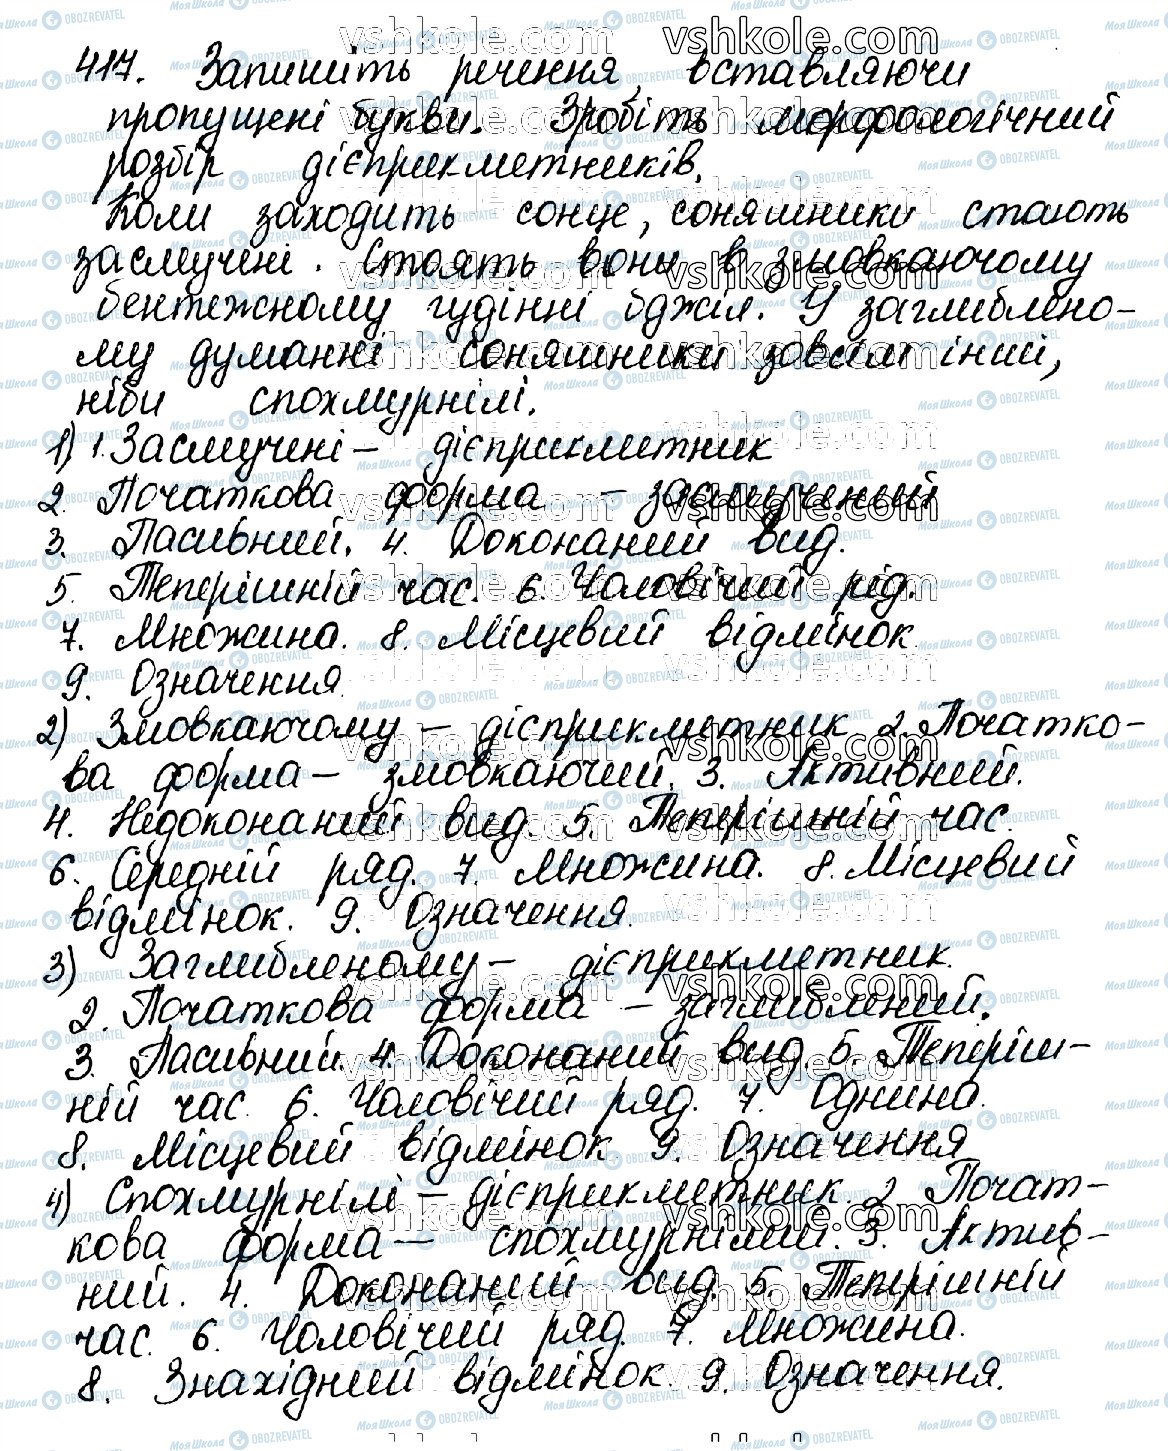 417. Запишіть речення, вставляючи
пропущені букви. Зробіть морфологічний
розбір дієприкметників.
Коли заходить сонце, соняшники стають
засмучені. Стоять вони в змовкаючому
бентежному гудінні бджіл. У заглиблено-
му думанні соняшники зовсім інші,
ніби спохмурнілі.
1) 1. Засмучені – дієприкметник
2. Початкова форма – засмучений
3. Пасивний. 4. Доконаний вид.
5. Теперішній час. 6. Чоловічий рід.
7. Множина. 8. Місцевий відмінок.
9. Означення.
2) Змовкаючому – дієприкметник 2. Початко-
ва форма – змовкаючий. 3. Активний.
4. Недоконаний вид 5. Теперішній час.
6. Середній ряд. 7. Множина. 8. Місцевий
відмінок. 9. Означення.
3) Заглибленому – дієприкметник.
2. Початкова форма – заглиблений.
3. Пасивний. 4. Доконаний вид 5. Теперіш-
ній час. 6. Чоловічий ряд. 7. Однина.
8. Місцевий відмінок 9. Означення
4) Спохмурнілі – дієприкметник 2 Почат-
кова форма – спохмурнілий. 3. Актив-
ний. 4. Доконаний вид. 5. Теперішній
час. 6. Чоловічий ряд. 7. Множина.
8. Знахідний відмінок. 9. Означення.